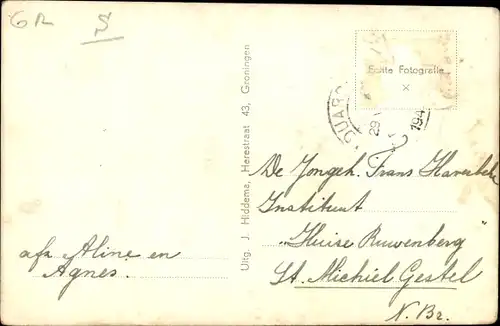 GR
Echte Fotografie
x
QUAR
29
194
Uitg. J. Hiddema, Herestraat 43, Groningen
De Jongeh. Frans Haverbeke
Instituut
„Huize Ruwenberg"
St. Michiel Gestel
N. Br.
afz Aline en
Agnes.